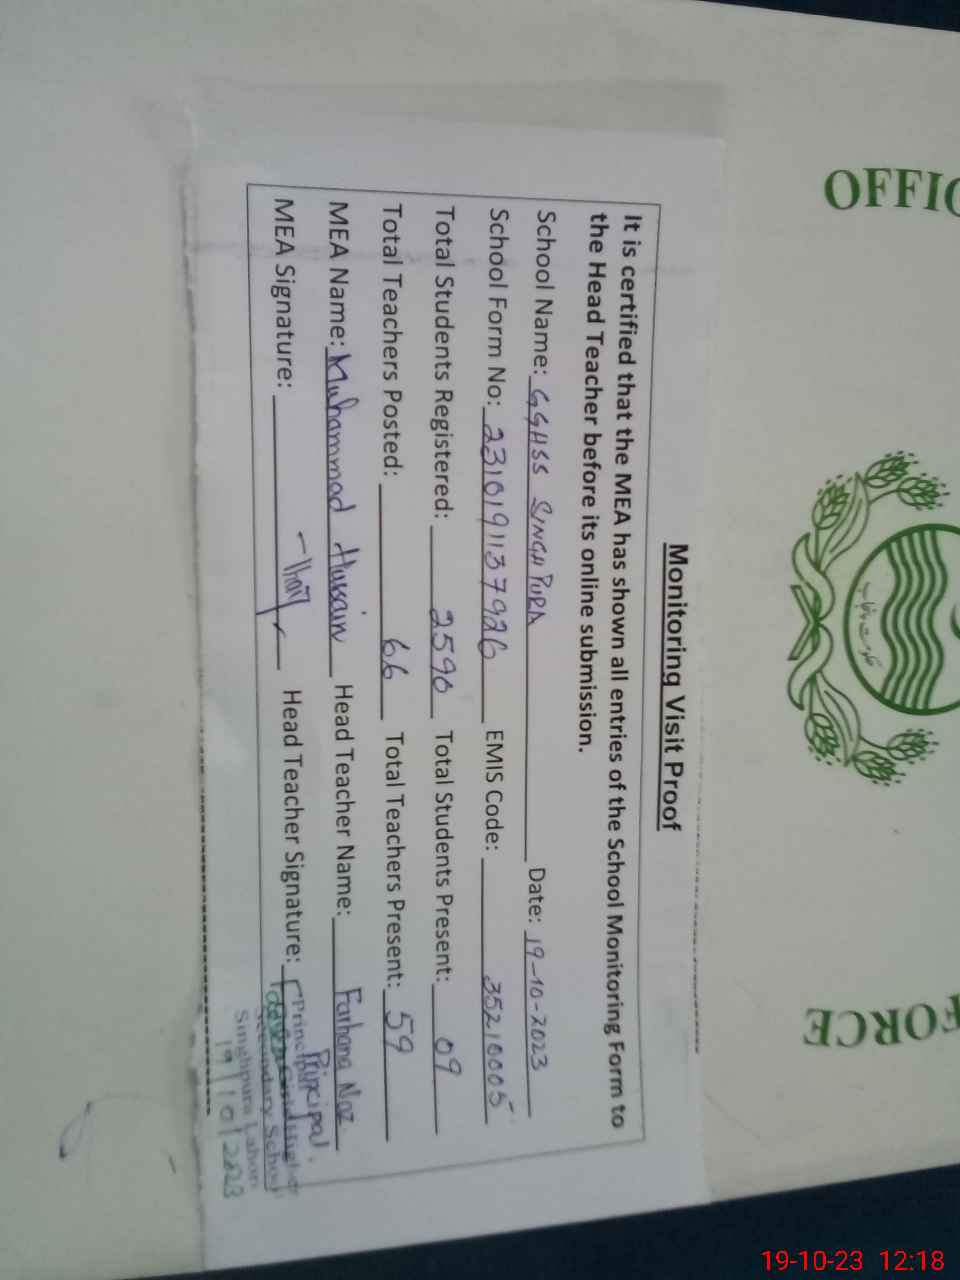 OFFIC
FORCE
Monitoring Visit Proof
It is certified that the MEA has shown all entries of the School Monitoring Form to
the Head Teacher before its online submission.
School Name: GGHSS SINGH PURA Date: 19-10-2023
School Form No: 2310191137926 EMIS Code: 35210005
Total Students Registered: 2590 Total Students Present: 09
Total Teachers Posted: 66 Total Teachers Present: 59
MEA Name: Muhammad Hussain Head Teacher Name: Farhana Naz
MEA Signature: Head Teacher Signature:
Principal
Principal
Secondary School
Singhpura Lahore
19/10/2023
19-10-23 12:18